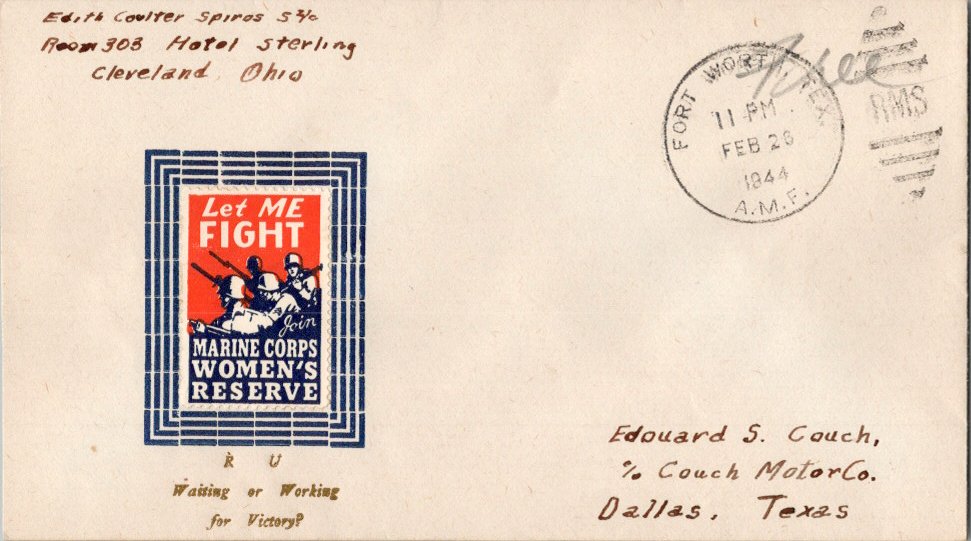 Edith Coulter Spiros S 2/c
Room 303 Hotel Sterling
Cleveland, Ohio
Free
FORT WORTH, TEX.
11 PM
FEB 28
1944
A.M.F.
RMS
Let ME
FIGHT
Join
MARINE CORPS
WOMEN'S
RESERVE
R U
Waiting or Working
for Victory?
Edouard S. Couch,
c/o Couch Motor Co.
Dallas, Texas